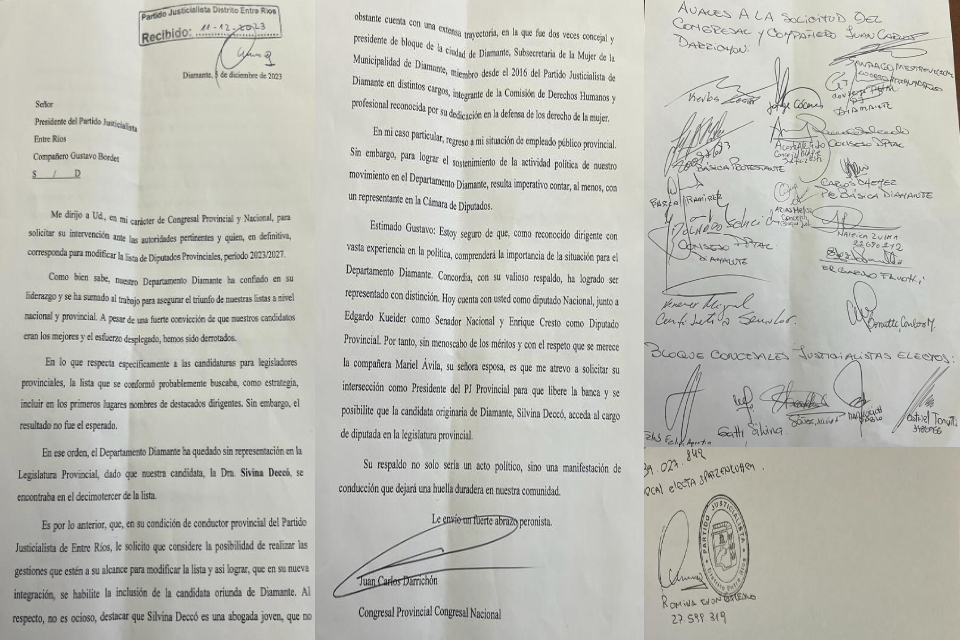 Partido Justicialista Distrito Entre Ríos
Recibido: 11-12-2023
Diamante, 5 de diciembre de 2023
Señor
Presidente del Partido Justicialista
Entre Ríos
Compañero Gustavo Bordet
S / D
Me dirijo a Ud., en mi carácter de Congresal Provincial y Nacional, para
solicitar su intervención ante las autoridades pertinentes y quien, en definitiva,
corresponda para modificar la lista de Diputados Provinciales, período 2023/2027.
Como bien sabe, nuestro Departamento Diamante ha confiado en su
liderazgo y se ha sumado al trabajo para asegurar el triunfo de nuestras listas a nivel
nacional y provincial. A pesar de una fuerte convicción de que nuestros candidatos
eran los mejores y el esfuerzo desplegado, hemos sido derrotados.
En lo que respecta específicamente a las candidaturas para legisladores
provinciales, la lista que se conformó probablemente buscaba, como estrategia,
incluir en los primeros lugares nombres de destacados dirigentes. Sin embargo, el
resultado no fue el esperado.
En ese orden, el Departamento Diamante ha quedado sin representación en la
Legislatura Provincial, dado que nuestra candidata, la Dra. Sivina Deccó, se
encontraba en el decimotercer de la lista.
Es por lo anterior, que, en su condición de conductor provincial del Partido
Justicialista de Entre Ríos, le solicito que considere la posibilidad de realizar las
gestiones que estén a su alcance para modificar la lista y así lograr, que en su nueva
integración, se habilite la inclusión de la candidata oriunda de Diamante. Al
respecto, no es ocioso, destacar que Silvina Deccó es una abogada joven, que no
obstante cuenta con una extensa trayectoria, en la que fue dos veces concejal y
presidente de bloque de la ciudad de Diamante, Subsecretaria de la Mujer de la
Municipalidad de Diamante, miembro desde el 2016 del Partido Justicialista de
Diamante en distintos cargos, integrante de la Comisión de Derechos Humanos y
profesional reconocida por su dedicación en la defensa de los derecho de la mujer.
En mi caso particular, regreso a mi situación de empleado público provincial.
Sin embargo, para lograr el sostenimiento de la actividad política de nuestro
movimiento en el Departamento Diamante, resulta imperativo contar, al menos, con
un representante en la Cámara de Diputados.
Estimado Gustavo: Estoy seguro de que, como reconocido dirigente con
vasta experiencia en la política, comprenderá la importancia de la situación para el
Departamento Diamante. Concordia, con su valioso respaldo, ha logrado ser
representado con distinción. Hoy cuenta con usted como diputado Nacional, junto a
Edgardo Kueider como Senador Nacional y Enrique Cresto como Diputado
Provincial. Por tanto, sin menoscabo de los méritos y con el respeto que se merece
la compañera Mariel Ávila, su señora esposa, es que me atrevo a solicitar su
intersección como Presidente del PJ Provincial para que libere la banca y se
posibilite que la candidata originaria de Diamante, Silvina Deccó, acceda al cargo
de diputada en la legislatura provincial.
Su respaldo no solo sería un acto político, sino una manifestación de
conducción que dejará una huella duradera en nuestra comunidad.
Le envío un fuerte abrazo peronista.
Juan Carlos Darrichón
Congresal Provincial Congresal Nacional
AVALES A LA SOLICITUD DEL
CONGRESAL Y COMPAÑERO JUAN CARLOS
DARRICHON.
DIAMANTE
BÁSICA PROTESTANTE
CONSEJO DPTAL
P.E BÁSICA DIAMANTE
RAMIREZ
CONSEJO DPTAL
DIAMANTE
BLOQUE CONCEJALES JUSTICIALISTAS ELECTOS:
Gatti Silvina
PARTIDO JUSTICIALISTA
Distrito Entre Ríos
27.599.319